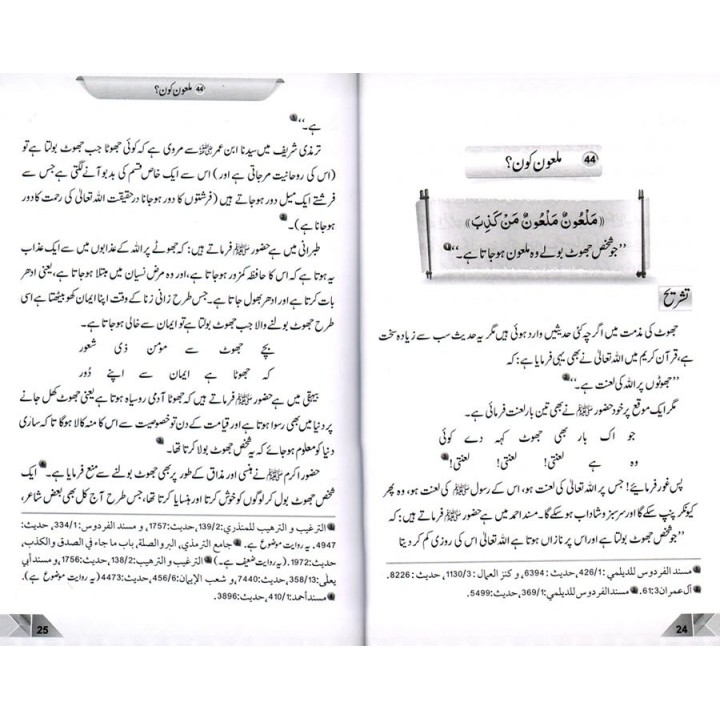 44 ملعون کون؟
«مَلْعُونٌ مَلْعُونٌ مَنْ كَذِبَ»
’’جو شخص جھوٹ بولے وہ ملعون ہو جاتا ہے۔‘‘
تشریح
جھوٹ کی مذمت میں اگرچہ کئی حدیثیں وارد ہوئی ہیں مگر یہ حدیث سب سے زیادہ سخت
ہے، قرآن کریم میں اللہ تعالیٰ نے بھی یہی فرمایا ہے: کہ
’’جھوٹوں پر اللہ کی لعنت ہے۔‘‘
مگر ایک موقع پر خود حضور ﷺ نے بھی تین بار لعنت فرمائی ہے۔
جو اک بار بھی جھوٹ کہہ دے کوئی
وہ ہے لعنتی! لعنتی! لعنتی!
پس غور فرمایئے! جس پر اللہ تعالیٰ کی لعنت ہو، اس کے رسول ﷺ کی لعنت ہو، وہ پھر
کیونکر پنپ سکے گا اور سرسبز و شاداب ہو سکے گا۔ مسند احمد میں ہے حضور ﷺ فرماتے ہیں: کہ
’’جو شخص جھوٹ بولتا ہے اور اس پر نازاں ہوتا ہے اللہ تعالیٰ اس کی روزی کم کر دیتا
مسند الفردوس للدیلمي: 426/1، حدیث: 6394، و کنز العمال: 1130/3، حدیث: 8226.
آل عمران 61:3. مسند الفردوس للدیلمي: 369/1، حدیث: 5499.
24
44 ملعون کون؟
ہے۔‘‘
ترمذی شریف میں سیدنا ابن عمر سے مروی ہے کہ کوئی جھوٹا جب جھوٹ بولتا ہے تو
(اس کی روحانیت مر جاتی ہے اور) اس سے ایک خاص قسم کی بدبو آنے لگتی ہے جس سے
فرشتے ایک میل دور ہو جاتے ہیں (فرشتوں کا دور ہو جانا درحقیقت اللہ تعالیٰ کی رحمت کا دور
ہو جانا ہے)۔
طبرانی میں ہے حضور ﷺ فرماتے ہیں: کہ جھوٹے پر اللہ کے عذابوں میں سے ایک عذاب
یہ ہوتا ہے کہ اس کا حافظہ کمزور ہو جاتا ہے، اور وہ مرض نسیان میں مبتلا ہو جاتا ہے، یعنی ادھر
بات کرتا ہے اور ادھر بھول جاتا ہے۔ جس طرح زانی زنا کے وقت اپنا ایمان کھو بیٹھتا ہے اسی
طرح جھوٹ بولنے والا جب جھوٹ بولتا ہے تو ایمان سے خالی ہو جاتا ہے۔
بچے جھوٹ سے مومن ذی شعور
کہ جھوٹا ہے ایمان سے اپنے دُور
بیہقی میں ہے حضور ﷺ فرماتے ہیں: کہ جھوٹا آدمی روسیاہ ہوتا ہے یعنی جھوٹ کھل جانے
پر دنیا میں بھی رسوا ہوتا ہے اور قیامت کے دن تو خصوصیت سے اس کا منہ کالا ہوگا تا کہ ساری
دنیا کو معلوم ہو جائے کہ یہ شخص جھوٹ بولا کرتا تھا۔
حضور اکرم ﷺ نے ہنسی اور مذاق کے طور پر بھی جھوٹ بولنے سے منع فرمایا ہے۔ ایک
شخص جھوٹ بول کر لوگوں کو خوش کرتا اور ہنسایا کرتا تھا، جس طرح آج کل بھی بعض شاعر،
الترغيب و الترهيب للمنذري: 139/2، حديث: 1757، و مسند الفردوس: 334/1، حديث:
4947. یہ روایت موضوع ہے۔ جامع الترمذي، البر والصلة، باب ما جاء في الصدق والكذب،
حديث: 1972. (یہ روایت ضعیف ہے)۔ الترغيب و الترهيب: 138/2، حديث: 1756، و مسند أبي
يعلى: 358/13، حديث: 7440، و شعب الإيمان: 456/6، حديث: 4473 (یہ روایت موضوع ہے)۔
مسند أحمد: 410/1، حديث: 3896.
25